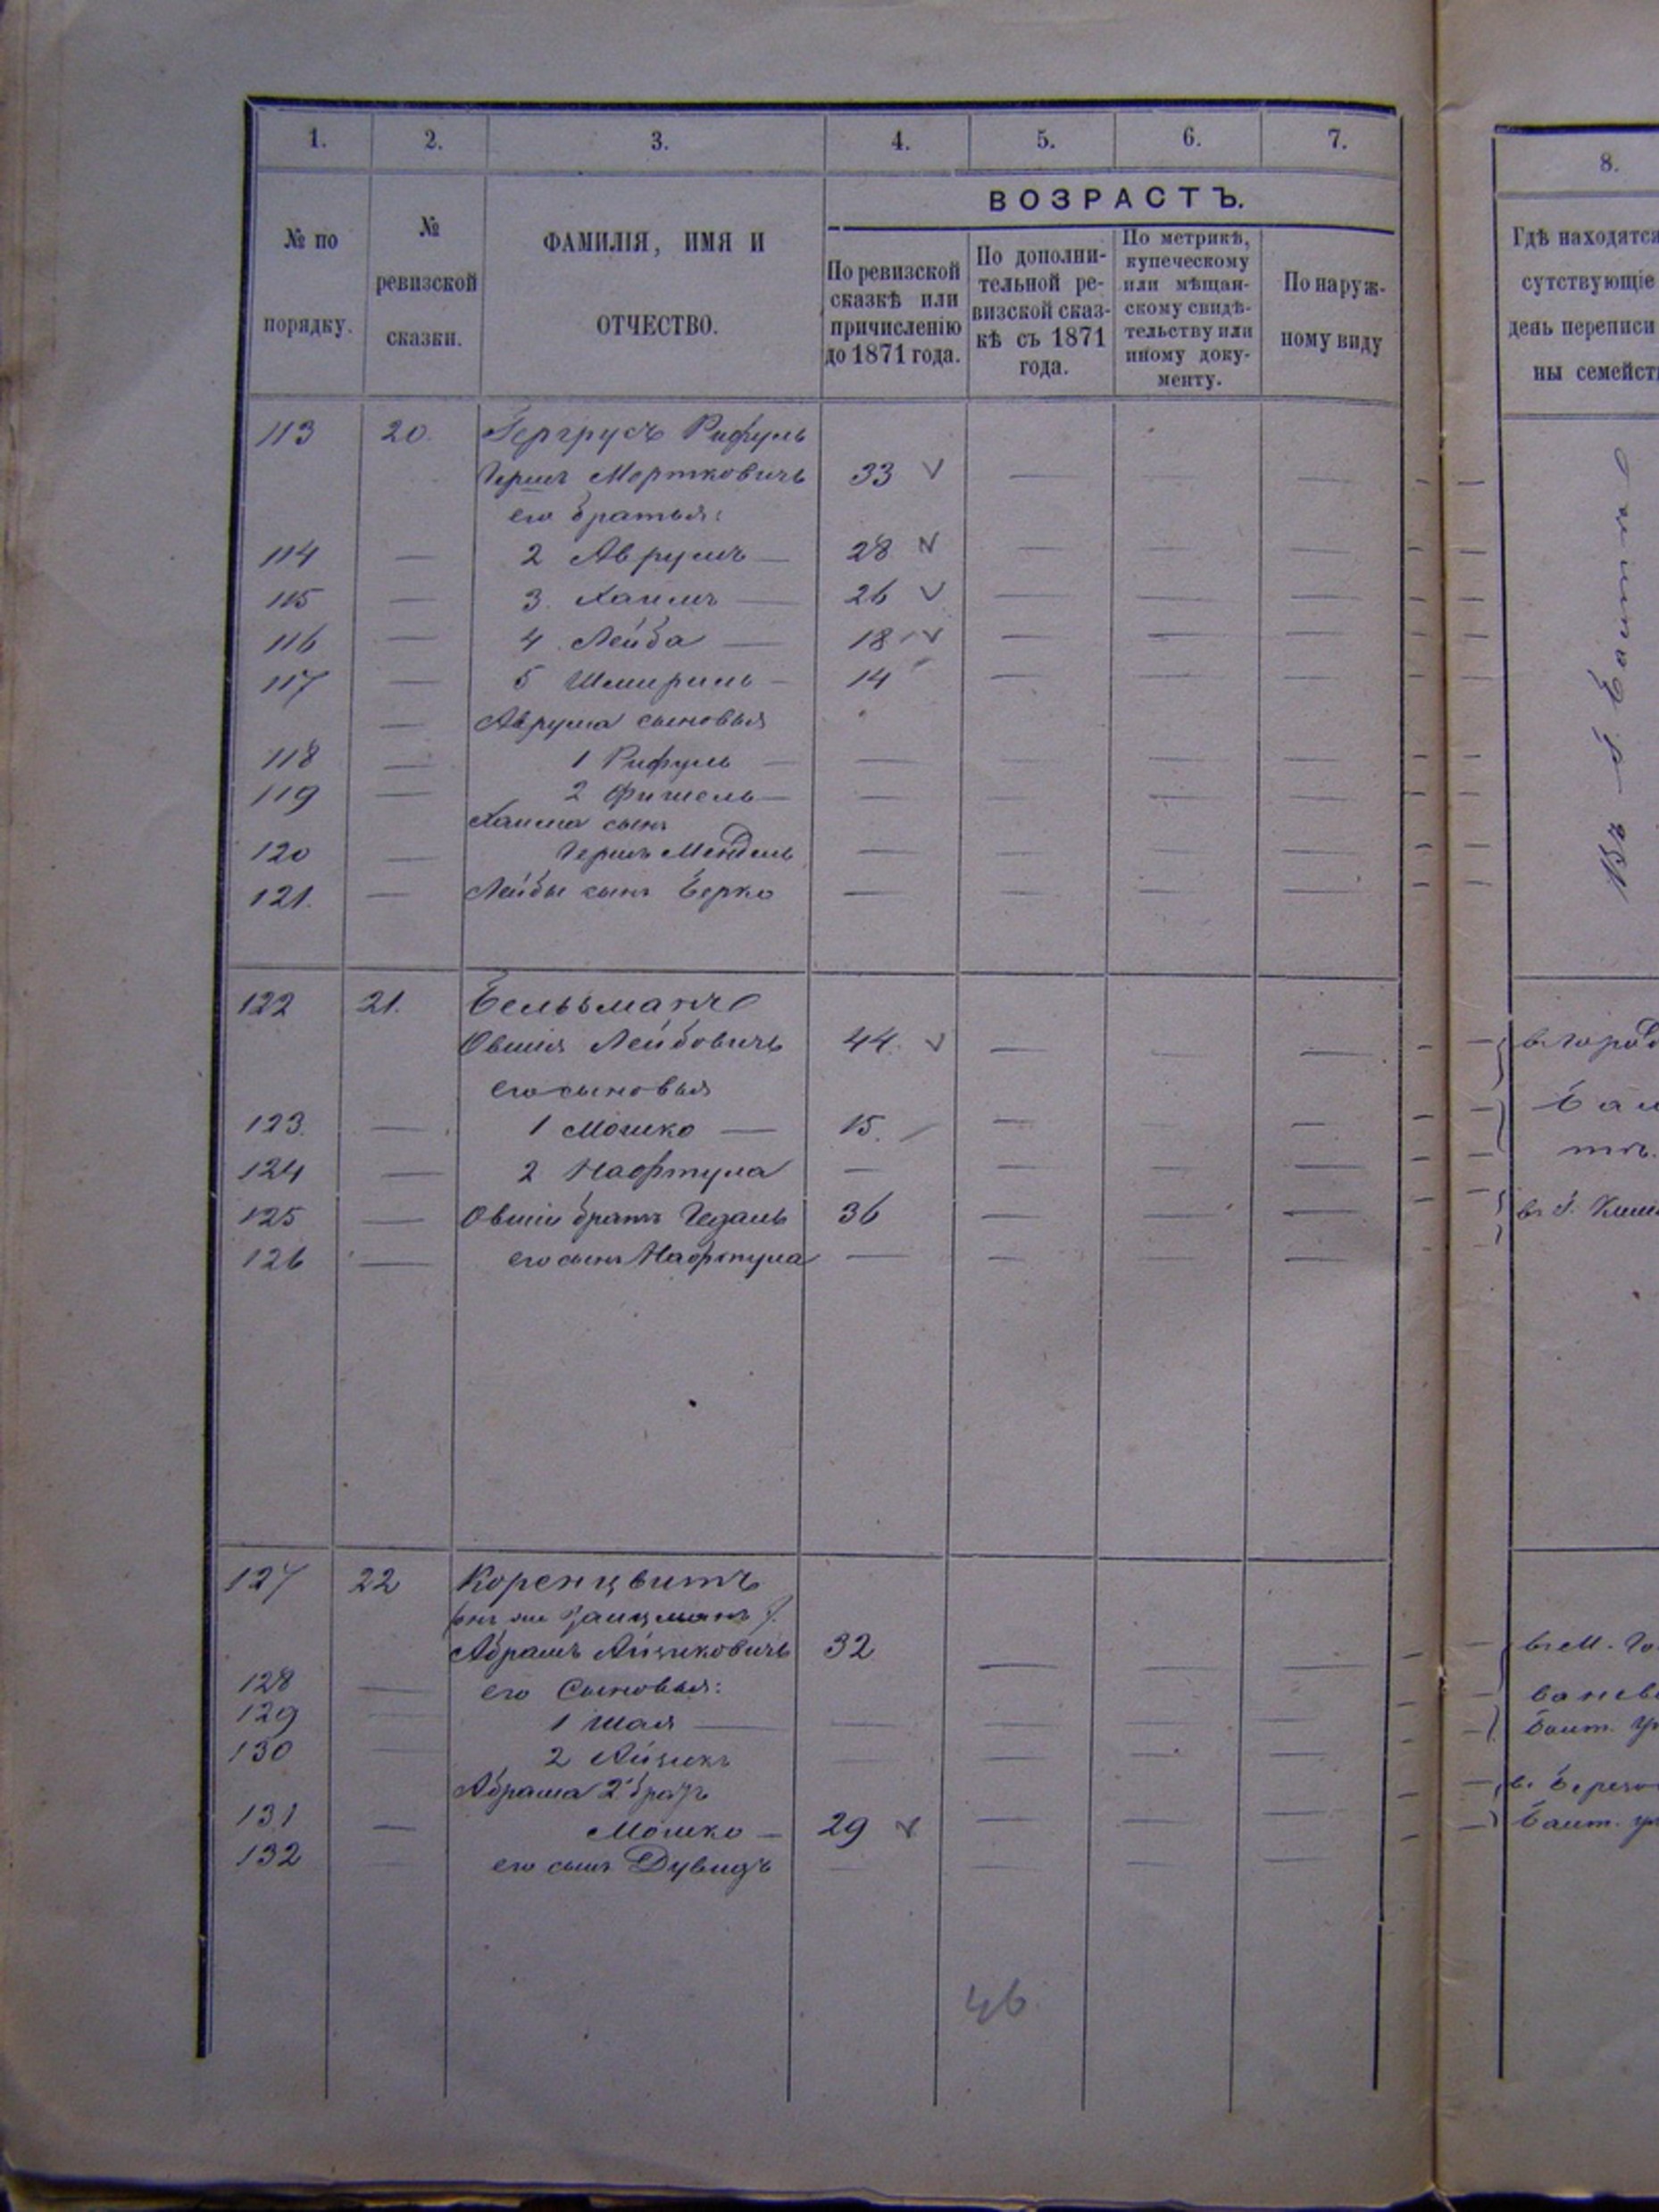 1. 2. 3. 4. 5. 6. 7.
8.
ВОЗРАСТЪ.
№ по порядку.
№ ревизской сказки.
ФАМИЛІЯ, ИМЯ И ОТЧЕСТВО.
По ревизской сказкѣ или причисленію до 1871 года.
По дополнительной ревизской сказкѣ съ 1871 года.
По метрикѣ, купеческому или мѣщанскому свидѣтельству или иному документу.
По наружному виду
Гдѣ находятся
сутствующіе
день переписи
ны семейст
113 20. Рифуль
Гершъ Мортковичъ 33
его братья:
114 — 2 Аврумъ — 28
115 — 3. Хаимъ — 26
116 — 4. Лейба — 18
117 — 5 Шмириль — 14
— Аврума сыновья
118 — 1 Рифуль —
119 — 2 Фишель —
Хаима сынъ
120 — Гершъ Мендель
121. — Лейбы сынъ Берко
Въ г. Балтѣ
122 21. Бельзманъ
Овшія Лейбовичъ 44.
его сыновья
123. — 1 Мошко — 15.
124 — 2 Нафтула —
125 — Овшіи братъ Гедаль 36
126 — его сынъ Нафтула —
въ город
Бал
тѣ.
127 22 Коренцвитъ
Абрамъ Айзиковичъ 32
128 — его Сыновья:
129 — 1 Шая —
130 — 2 Айзикъ
Абрама 2й братъ
131 — Мошко — 29
132 — его сынъ Дувидъ
въ м.
балт.
балт.
46